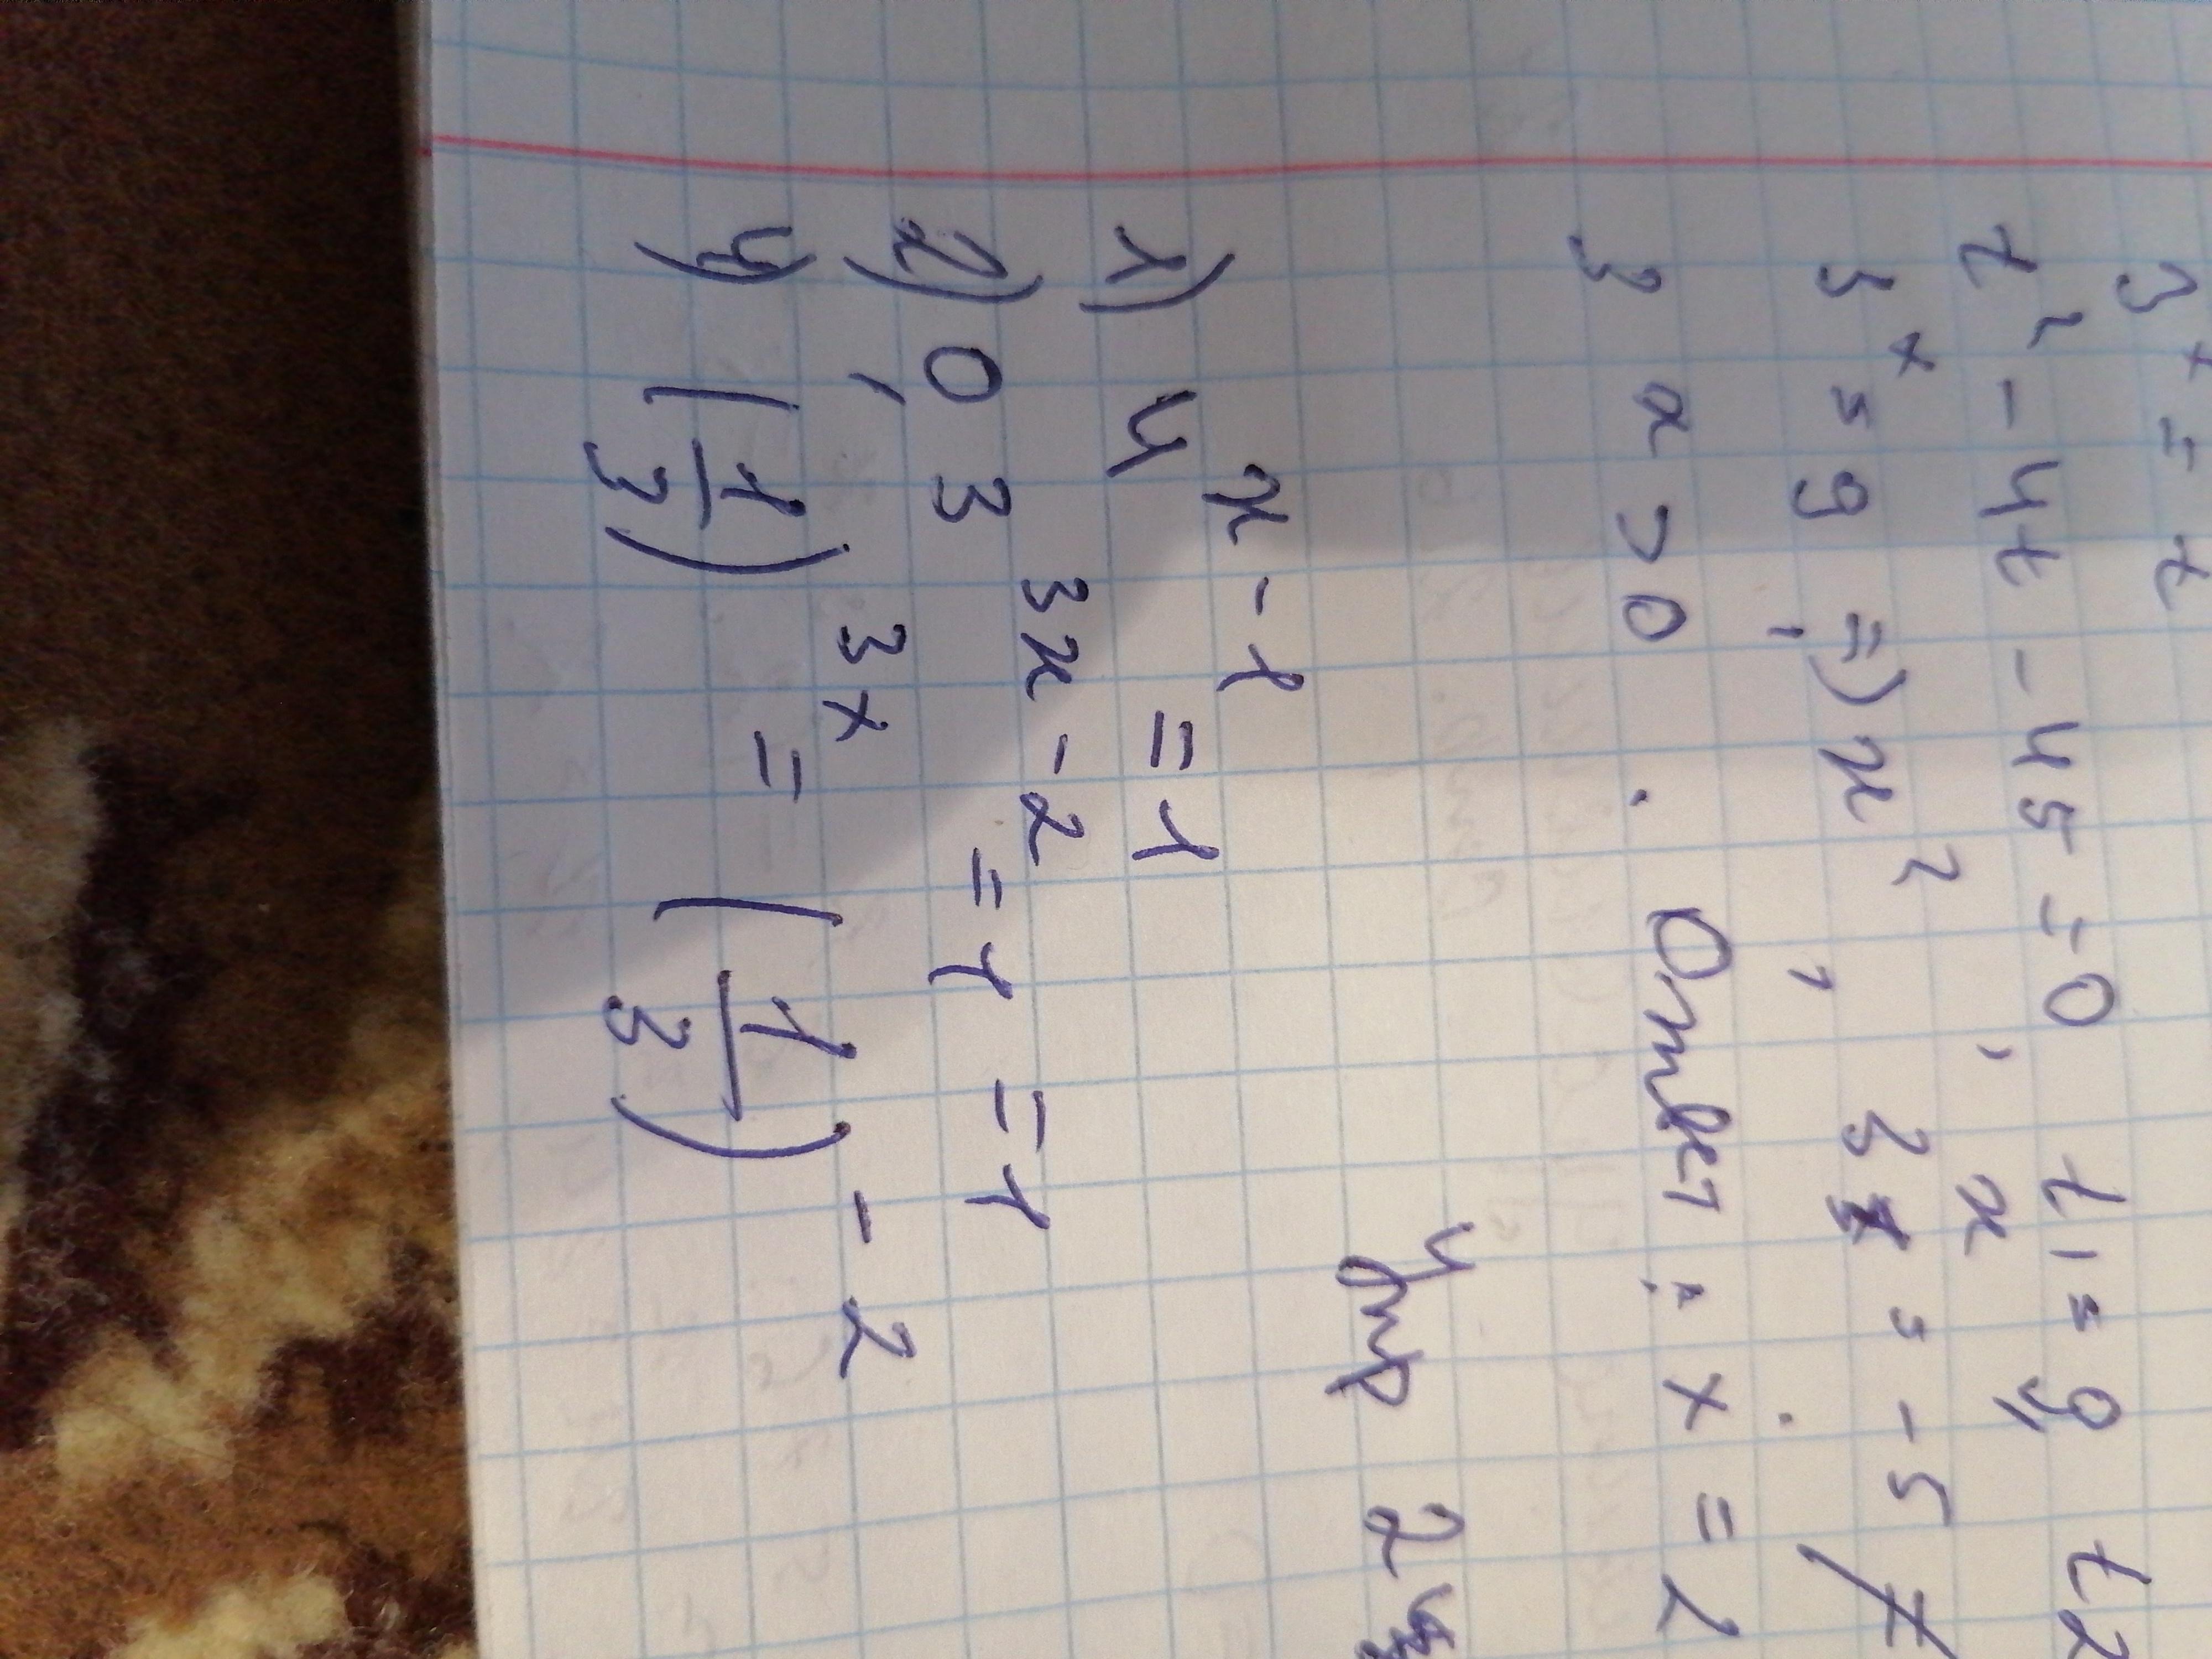 3ˣ = t
t² - 4t - 45 = 0, t₁ = 9, t2
3ˣ = 9, => x = 2, 3ˣ = -5
3 x > 0. Ответ: x = 2
Упр 24
1) 4^{x-1} = 1
2) 0,3^{3x-2} = 1 = 1
4) (1/3)^{3x} = (1/3)^{-2}